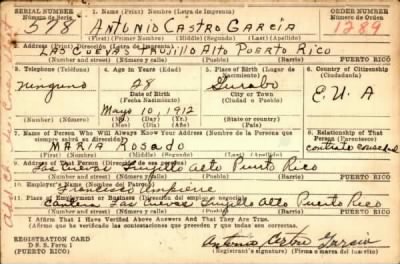 SERIAL NUMBER 1. Name (Print) Nombre (Letra de Imprenta) ORDER NUMBER
Número de Serie Número de Orden
578 Antonio Castro Garcia 1289
(First) (Primer Nombre) (Middle) (Segundo) (Last) (Apellido)
Address (Print) Dirección (Letra de Imprenta)
Las Cuevas Trujillo Alto Puerto Rico
PUERTO RICO
(Number and street) (Número y calle) (Town) (Pueblo)
3. Telephone (Teléfono) 4. Age in Years (Edad) 5. Place of Birth (Lugar de Nacimiento) 6. Country of Citizenship (Ciudadanía)
ninguno Gurabo E. U. A
Date of Birth (Fecha Nacimiento) (Town or City) (Ciudad o Pueblo)
Mayo 10, 1912
(Number) (Número) (Mo.) (Day) (Yr.) (State or country) (Estado o país)
7. Name of Person Who Will Always Know Your Address (Nombre de la Persona que siempre sabrá su dirección) 8. Relationship of That Person (Parentesco)
Maria Rosado
(First) (Primer Nombre) (Middle) (Segundo) (Last) (Apellido)
9. Address of That Person (Dirección de esa persona)
Las Cuevas Trujillo Alto Puerto Rico
(Number and street) (Número y calle) (Town) (Pueblo)
10. Employer's Name (Nombre del Patrono)
Francisco
11. Place of Employment or Business (Dirección del empleo o negocio)
Cantera Las Cuevas Trujillo Alto Puerto Rico
PUERTO RICO
(Number and street) (Número y calle) (Town) (Pueblo)
I Affirm That I Have Verified Above Answers And That They Are True.
(Afirmo que he verificado las contestaciones que preceden y que todas son ciertas).
REGISTRATION CARD Antonio Castro Garcia
D. S. S. Form 1 Registrant's signature (Firma o marca del inscrito)
PUERTO RICO